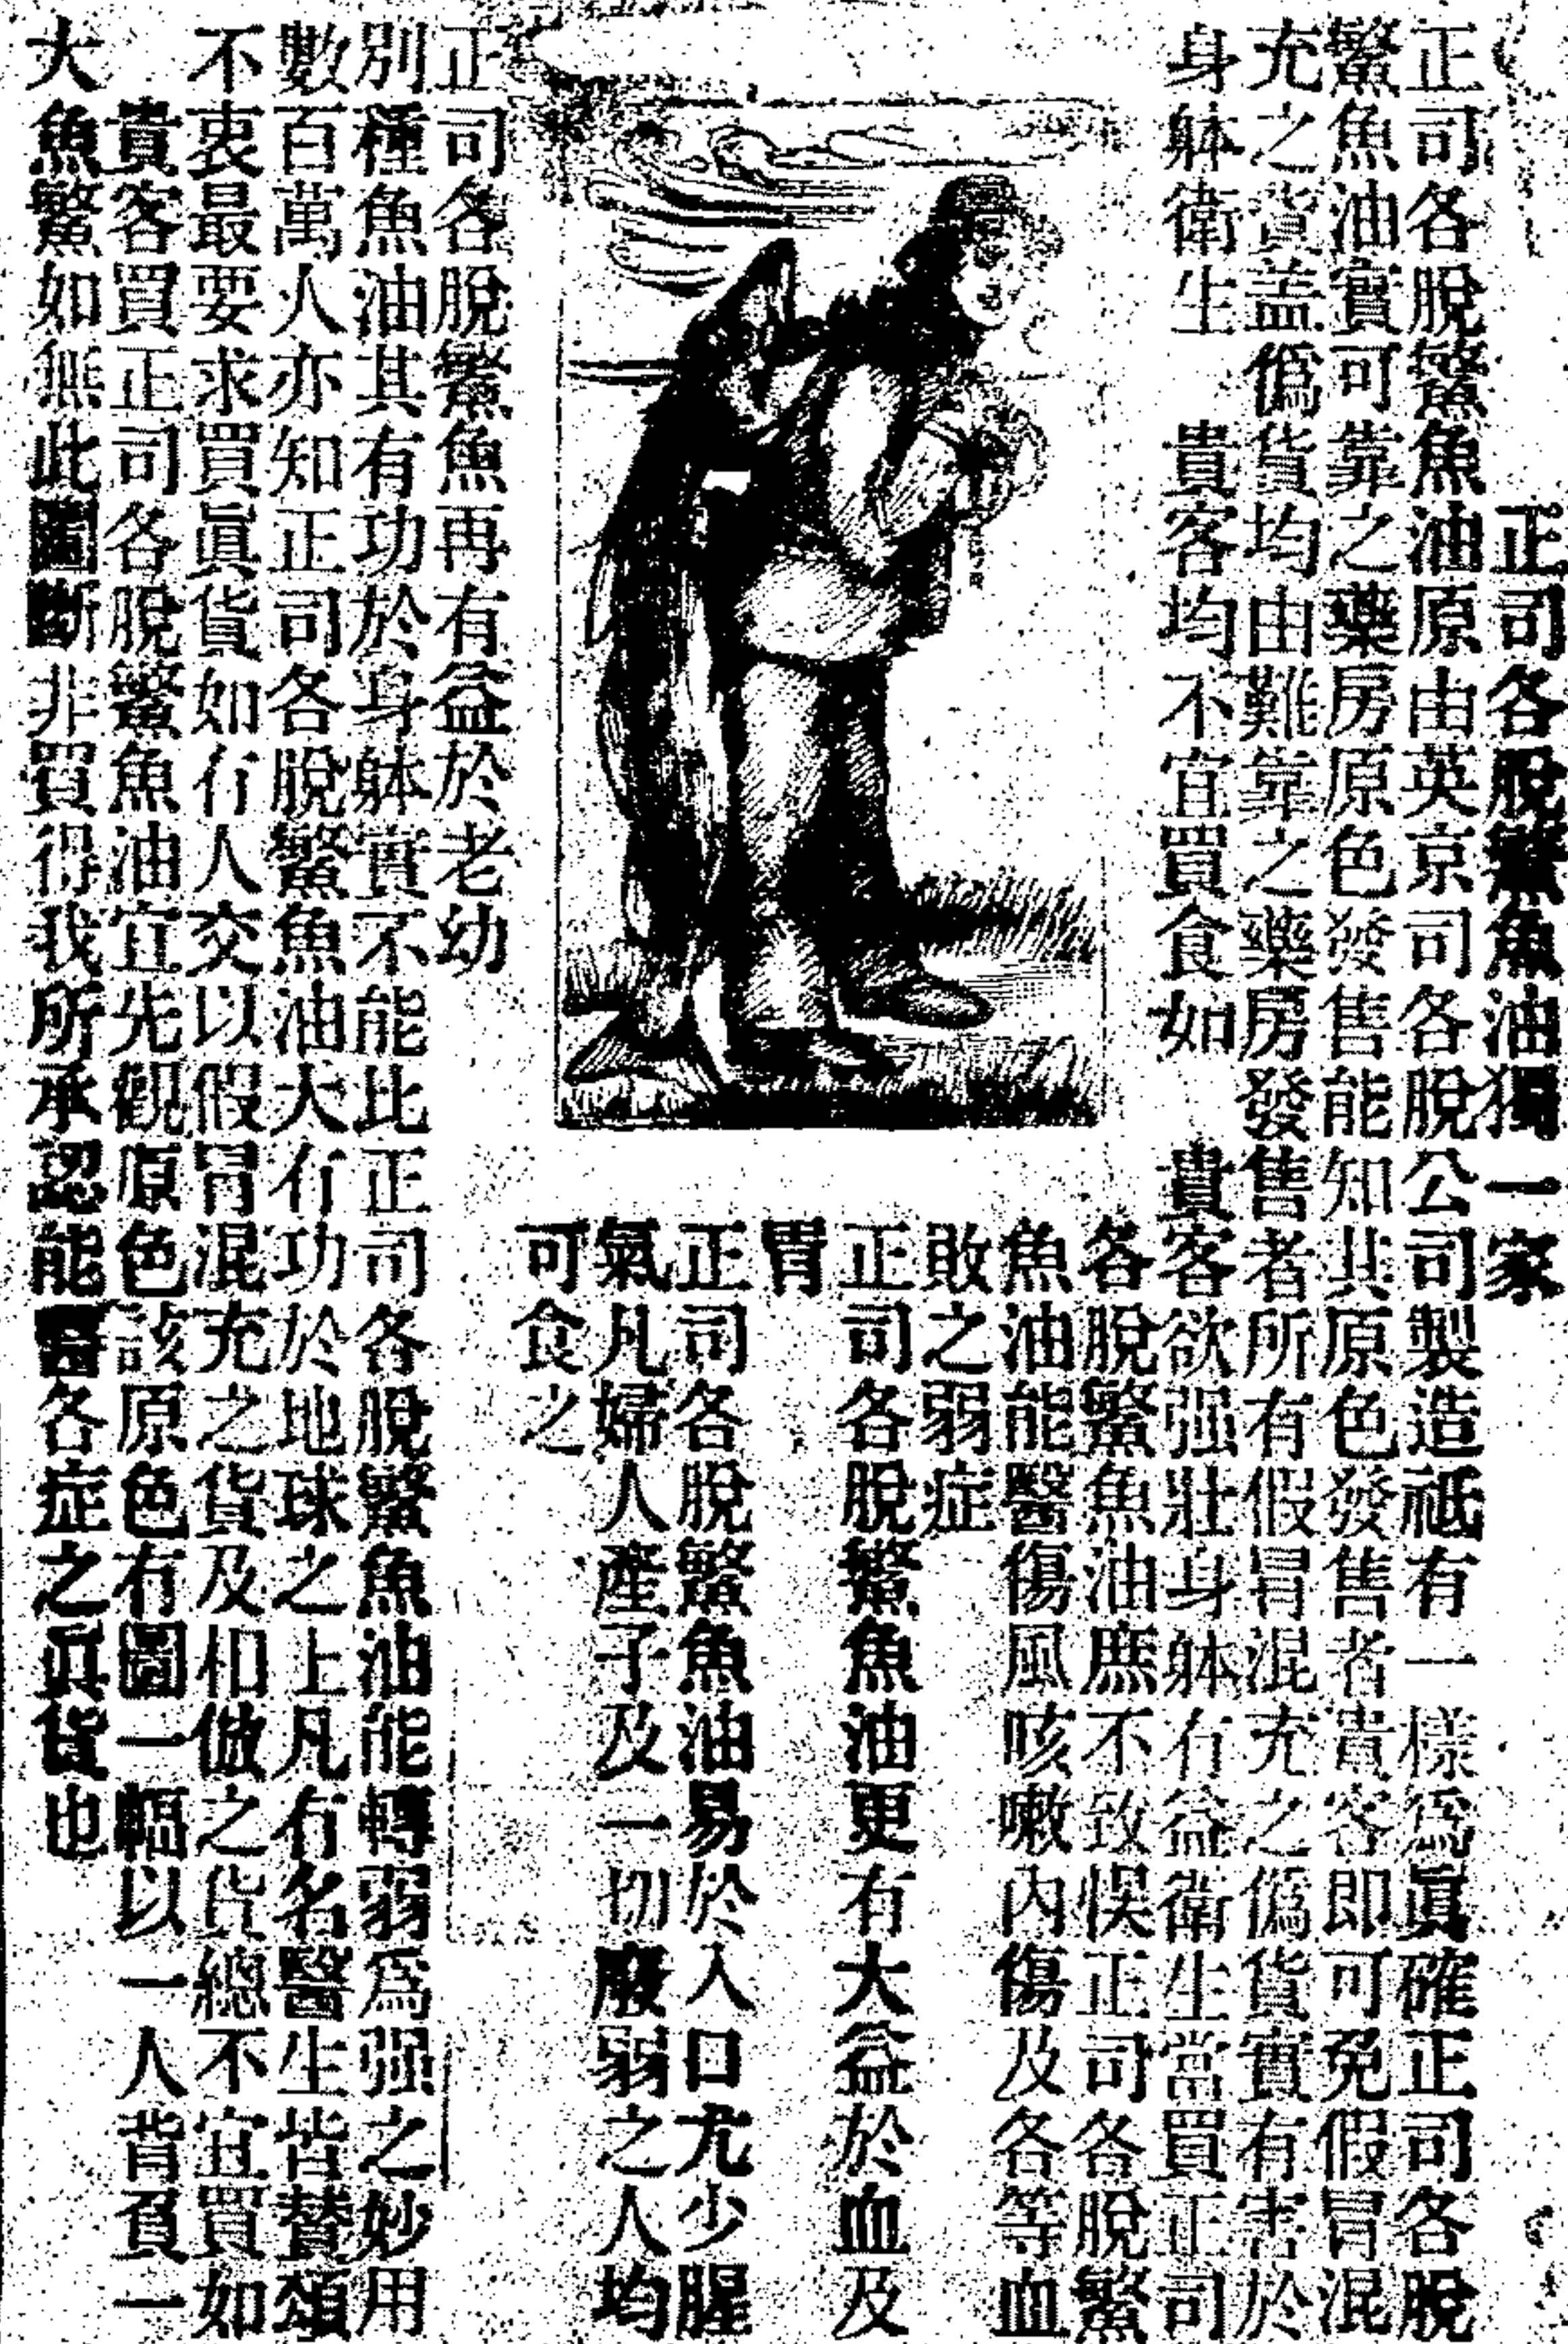 正司各脫鰵魚油獨一家
正司各脫鰵魚油原由英京司各脫公司製造祗有一樣爲眞確正司各脫
鰵魚油實可靠之藥房原色發售能知其原色發售者貴客即可免假冒混
充之貨蓋僞貨均由難靠之藥房發售者所有假冒混充之僞貨實有害於
身躰衛生　貴客均不宜買食如　貴客欲强壯身躰有益衛生當買正司
各脫鰵魚油庶不致悞正司各脫鰵
魚油能醫傷風咳嗽內傷及各等血
敗之弱症
正司各脫鰵魚油更有大益於血及
胃
正司各脫鰵魚油易於入口尤少腥
氣凡婦人產子及一切廢弱之人均
可食之
正司各脫鰵魚再有益於老幼
別種魚油其有功於身躰實不能比正司各脫鰵魚油能轉弱爲强之妙用
數百萬人亦知正司各脫鰵魚油大有功於地球之上凡有名醫生皆贊頌
不衷最要求買眞貨如有人交以假冐混充之貨及相倣之貨總不宜買如
貴客買正司各脫鰵魚油宜先觀原色該原色有圖一幅以一人背負一
大魚鰵如無此圖斷非買得我所承認能醫各症之眞貨也